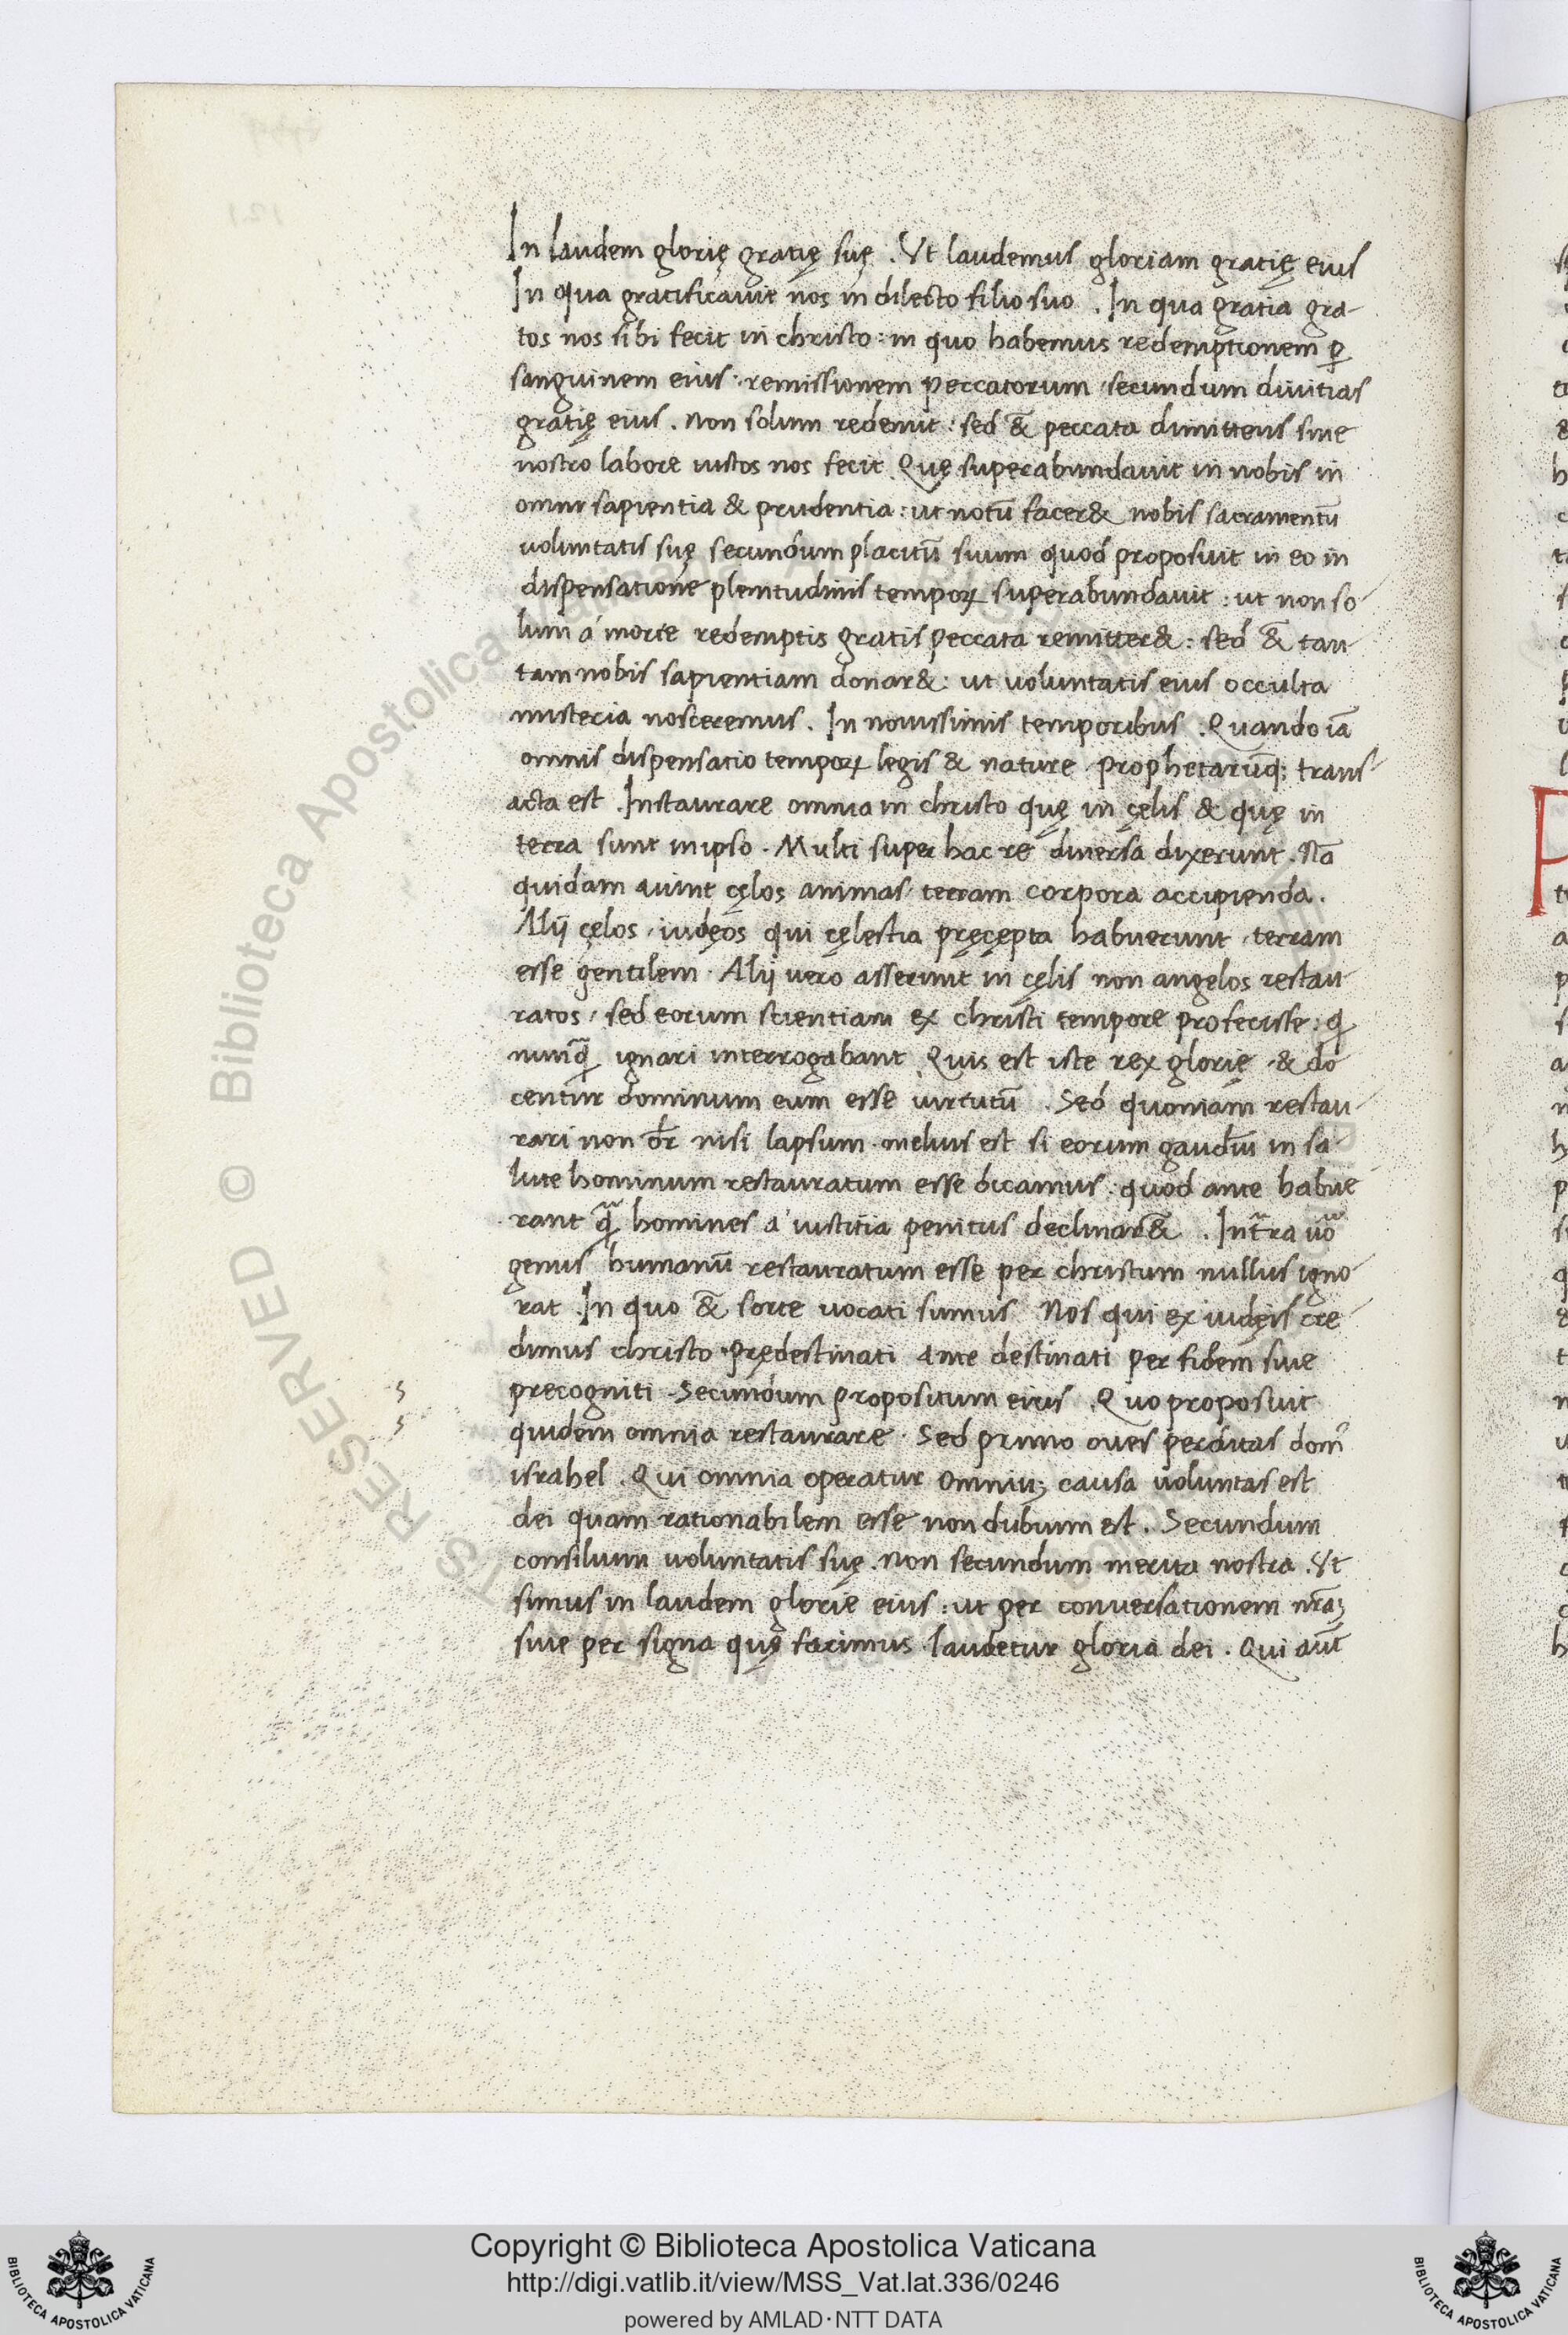 In laudem glorię gratię suę . Ut laudemus gloriam gratię eius
In qua gratificauit nos in dilecto filio suo . In qua gratia gra-
tos nos sibi fecit in christo : in quo habemus redemptionem ꝑ
sanguinem eius · remissionem peccatorum · secundum diuitias
gratię eius . Non solum redemit : sed &̄ peccata dimittens sine
nostro labore iustos nos fecit . Quę superabundauit in nobis in
omni sapientia & prudentia : ut notū facer& nobis sacramentū
uoluntatis suę secundum placitū suum quod proposuit in eo in
dispensatione plenitudinis temporꝝ superabundauit : ut non so-
lum á morte redemptis gratis peccata remitter& : sed &̄ tan-
tam nobis sapientiam donar& : ut uoluntatis eius occulta
misteria nosceremus . In nouissimis temporibus . Quando iā
omnis dispensatio temporꝝ legis & nature · prophetarūq; trans-
acta est . Instaurare omnia in christo quę in cęlis & quę in
terra sunt in ipso . Multi super hac re diuersa dixerunt . Nā
quidam aiunt cęlos animas · terram corpora accipienda .
Alij cęlos · iudęos qui cęlestia pręcępta habuerunt · terram
esse gentilem . Alij uero asserunt in cęlis non angelos restau-
ratos · sed eorum scientiam ex christi tempore profecisse : ꝙ
nunꝗ̄ ignari interrogabant . Quis est iste rex glorię · & do-
centur dominum eum esse uirtutū . Sed quoniam restau-
rari non dr̄ nisi lapsum · melius est si eorum gaudiū in sa-
lute hominum restauratum esse dicamus : quod ante habue-
rant ꝗ̄ homines a' iustitia penitus declinar&̄ . In t̄ra uō
genus humanū restauratum esse per christum nullus igno-
rat . In quo &̄ sorte uocati sumus . Nos qui ex iudęis cre-
dimus christo . Prędestinati . Ante destinati per fidem siue
precogniti . Secundum propositum eius . Quo proposuit
quidem omnia restaurare . Sed primo oues perditas dom'
israhel . Qui omnia operatur Omniuꝫ causa uoluntas est
dei quam rationabilem esse non dubium est . Secundum
consilium uoluntatis suę . Non secundum merita nostra . Ut
simus in laudem glorię eius : ut per conuersationem nr̄aꝫ
siue per signa quę facimus · laudetur gloria dei . Qui aūt
© Biblioteca Apostolica Vaticana
RESERVED
Copyright © Biblioteca Apostolica Vaticana
http://digi.vatlib.it/view/MSS_Vat.lat.336/0246
powered by AMLAD·NTT DATA
BIBLIOTECA APOSTOLICA VATICANA
BIBLIOTECA APOSTOLICA VATICANA